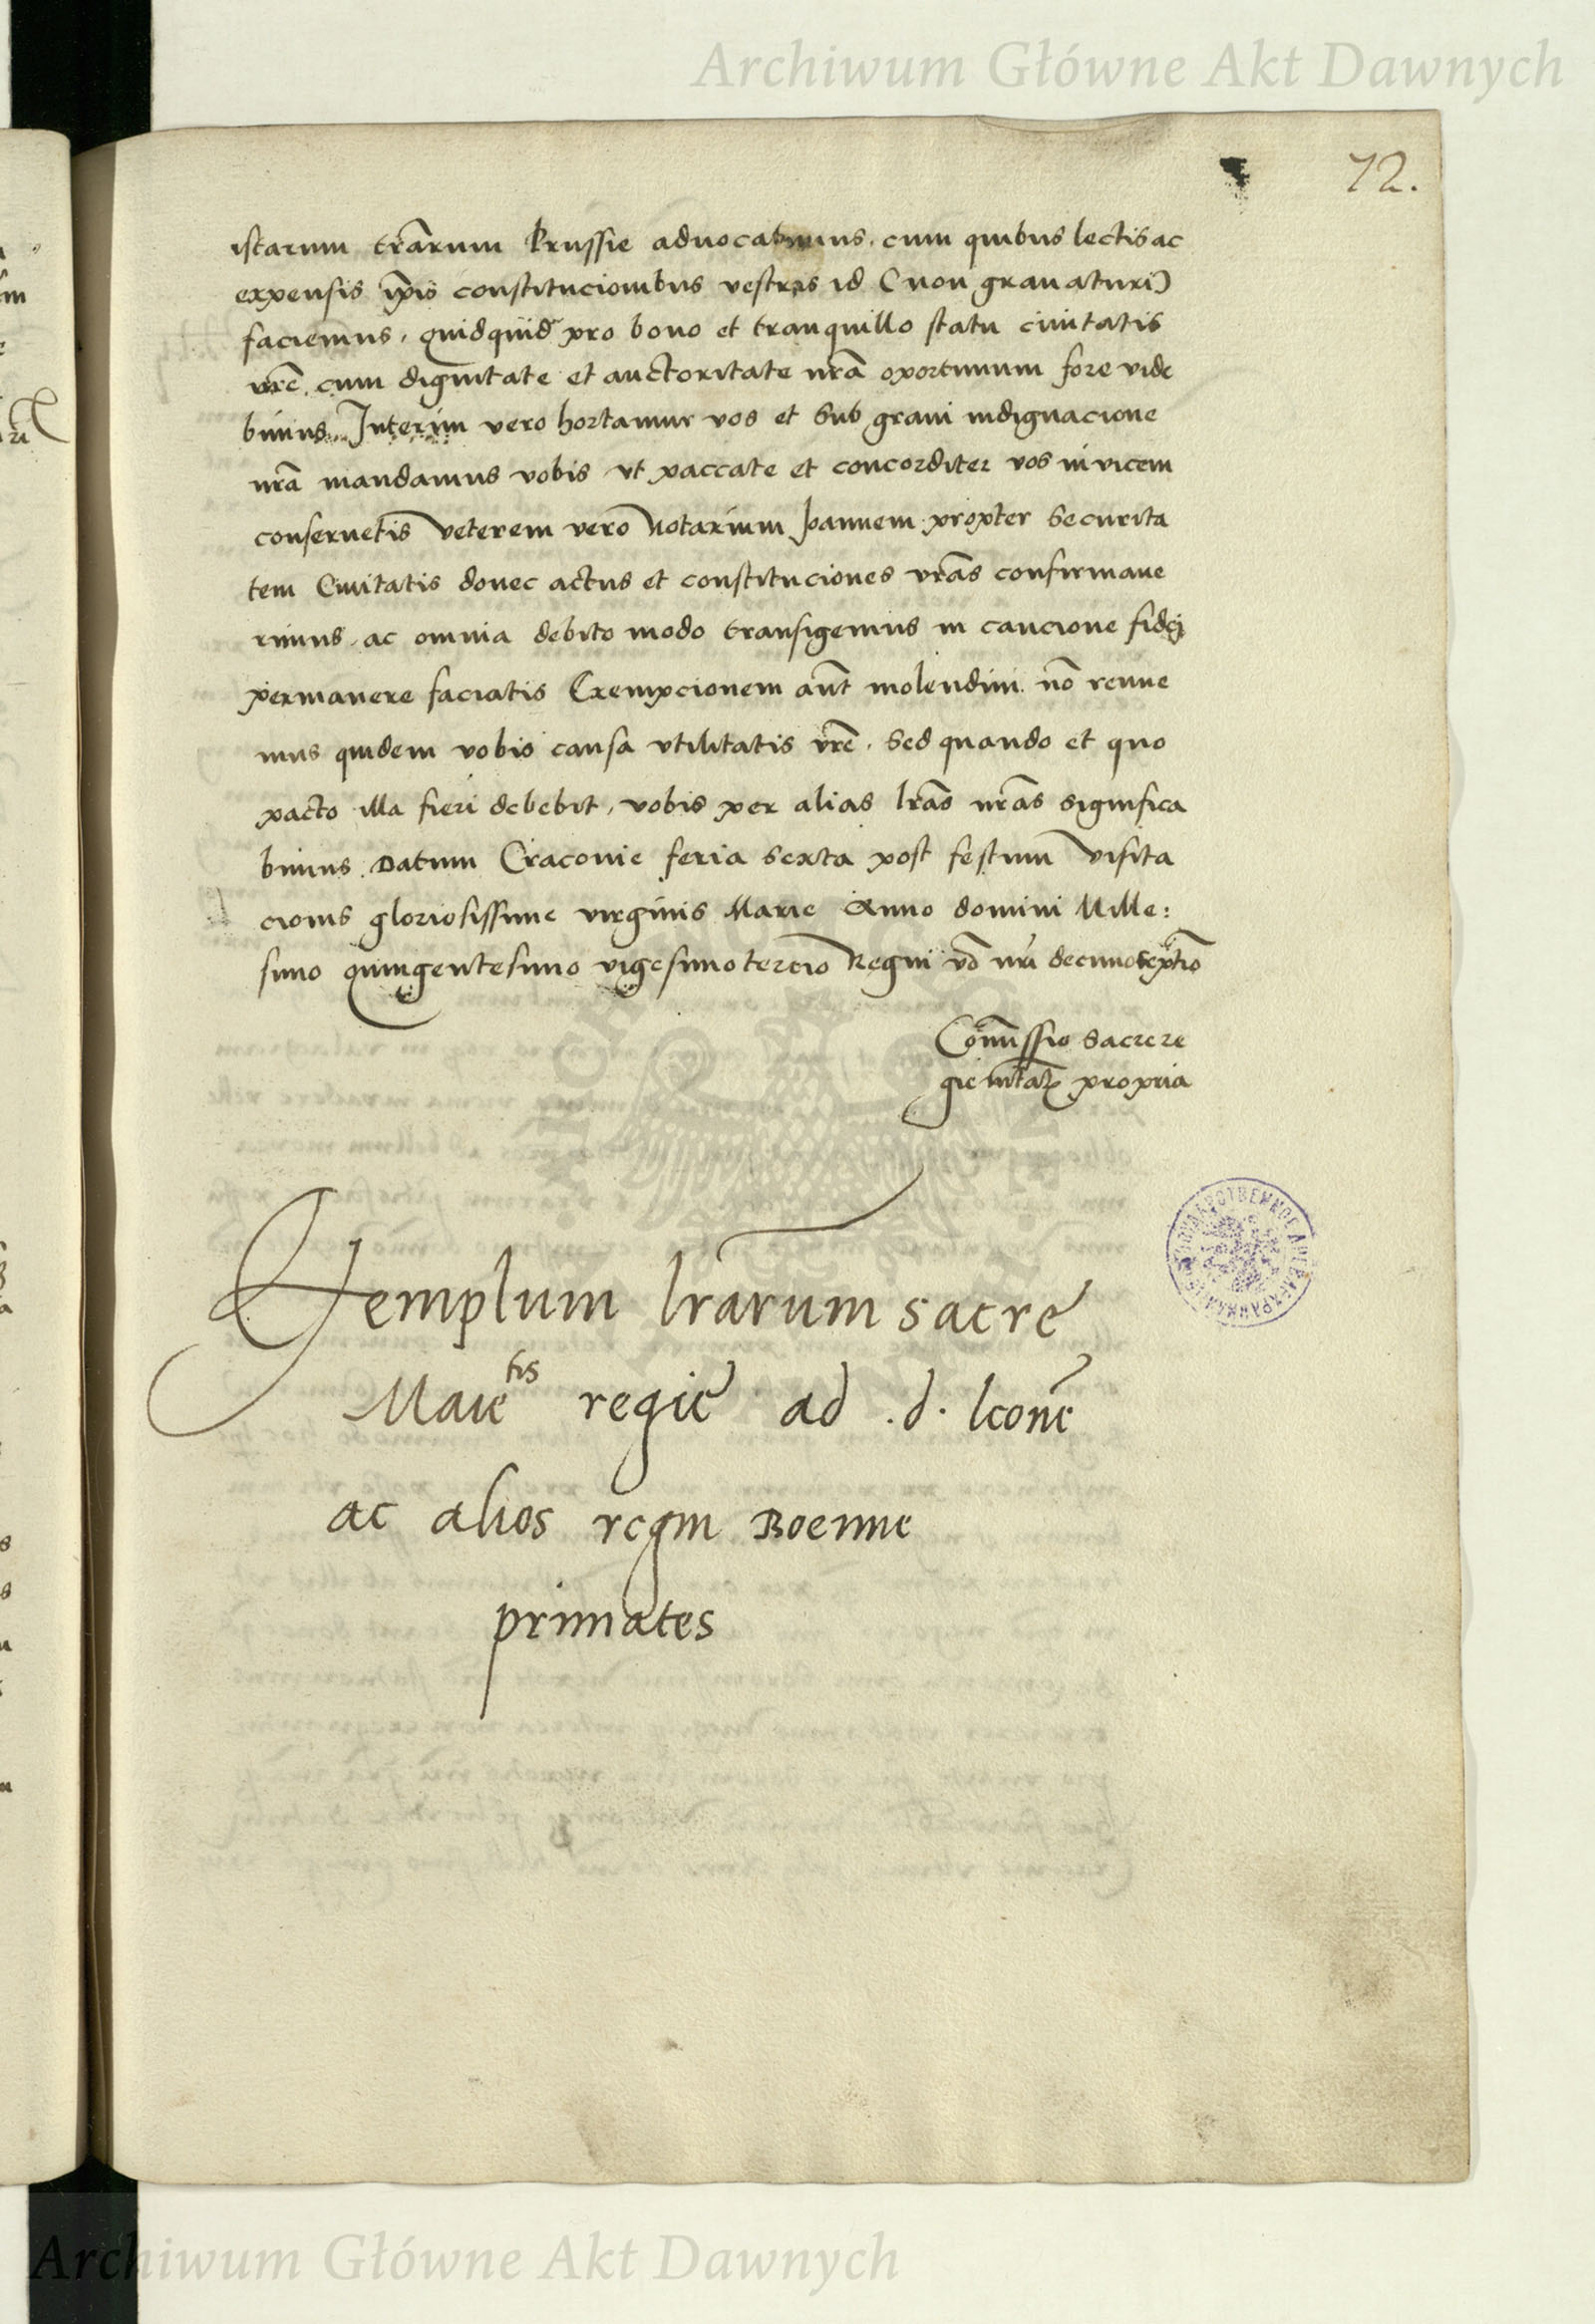 Archiwum Główne Akt Dawnych
72.
istarum trarum Prussie aduocabimus, cum quibus lectis ac
expensis ipsis constitucionibus vestris id (non grauaturi)
faciemus, quidquid pro bono et tranquillo statu ciuitatis
vre cum dignitate et auctoritate nra oportunum fore vide
bimus. Interim vero hortamur vos et sub graui indignacione
nra mandamus vobis vt paccate et concorditer vos inuicem
conseruetis veterem vero Notarium Joannem propter securita
tem Ciuitatis donec actus et constituciones vras confirmaue
rimus, ac omnia debito modo transigemus in caucione fidei
permanere faciatis Exempcionem aut molendini no renue
mus quidem vobis causa vtilitatis vre, sed quando et quo
pacto illa fieri debebit, vobis per alias lras nras significa
bimus. Datum Cracouie feria sexta post festum visita
cionis gloriosissime virginis Marie Anno domini Mille:
simo quingentesimo vigesimotercio Regni vo nri decimoseptio
Comissio sacre re
gie mtat propria
Exemplum lrarum sacre
Maietis regie ad .d. leone
ac alios regni Boemie
primates
Archiwum Główne Akt Dawnych